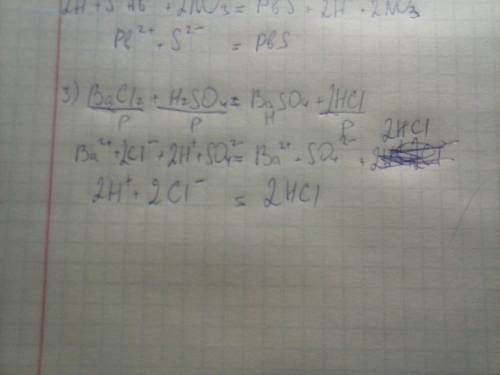 2H + S + Pb + 2NO₃ = PbS + 2H + 2NO₃
Pb²⁺ + S²⁻ = PbS
3) BaCl₂ + H₂SO₄ = BaSO₄ + 2HCl
P P H P
2HCl
Ba²⁺ + 2Cl⁻ + 2H⁺ + SO₄²⁻ = Ba²⁺ + SO₄²⁻ +
2H⁺ + 2Cl⁻ = 2HCl